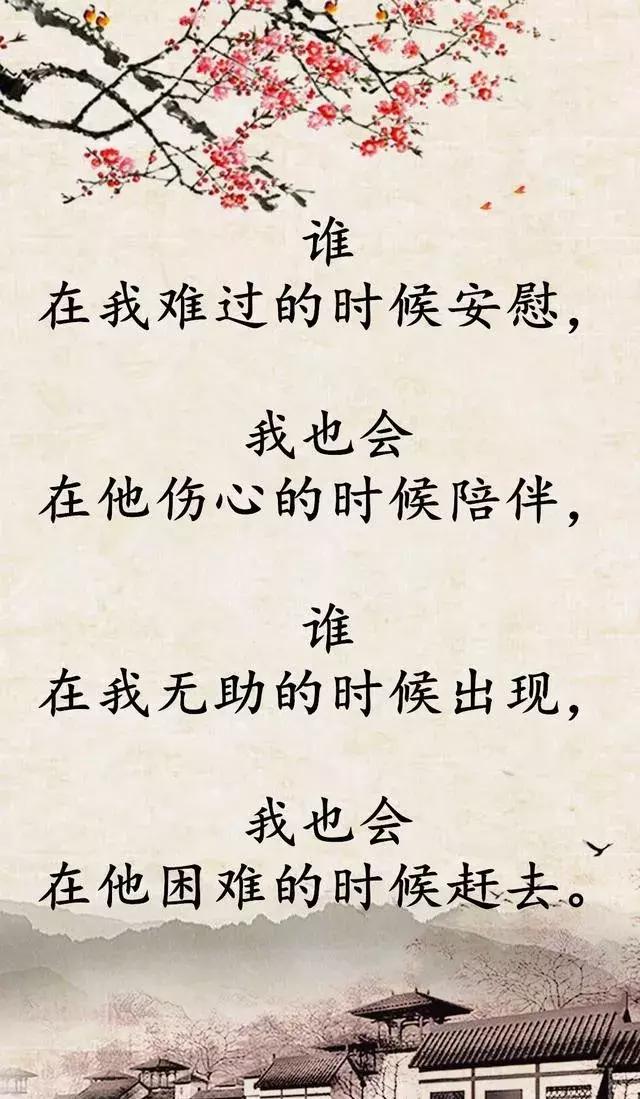 谁
在我难过的时候安慰，
我也会
在他伤心的时候陪伴，
谁
在我无助的时候出现，
我也会
在他困难的时候赶去。